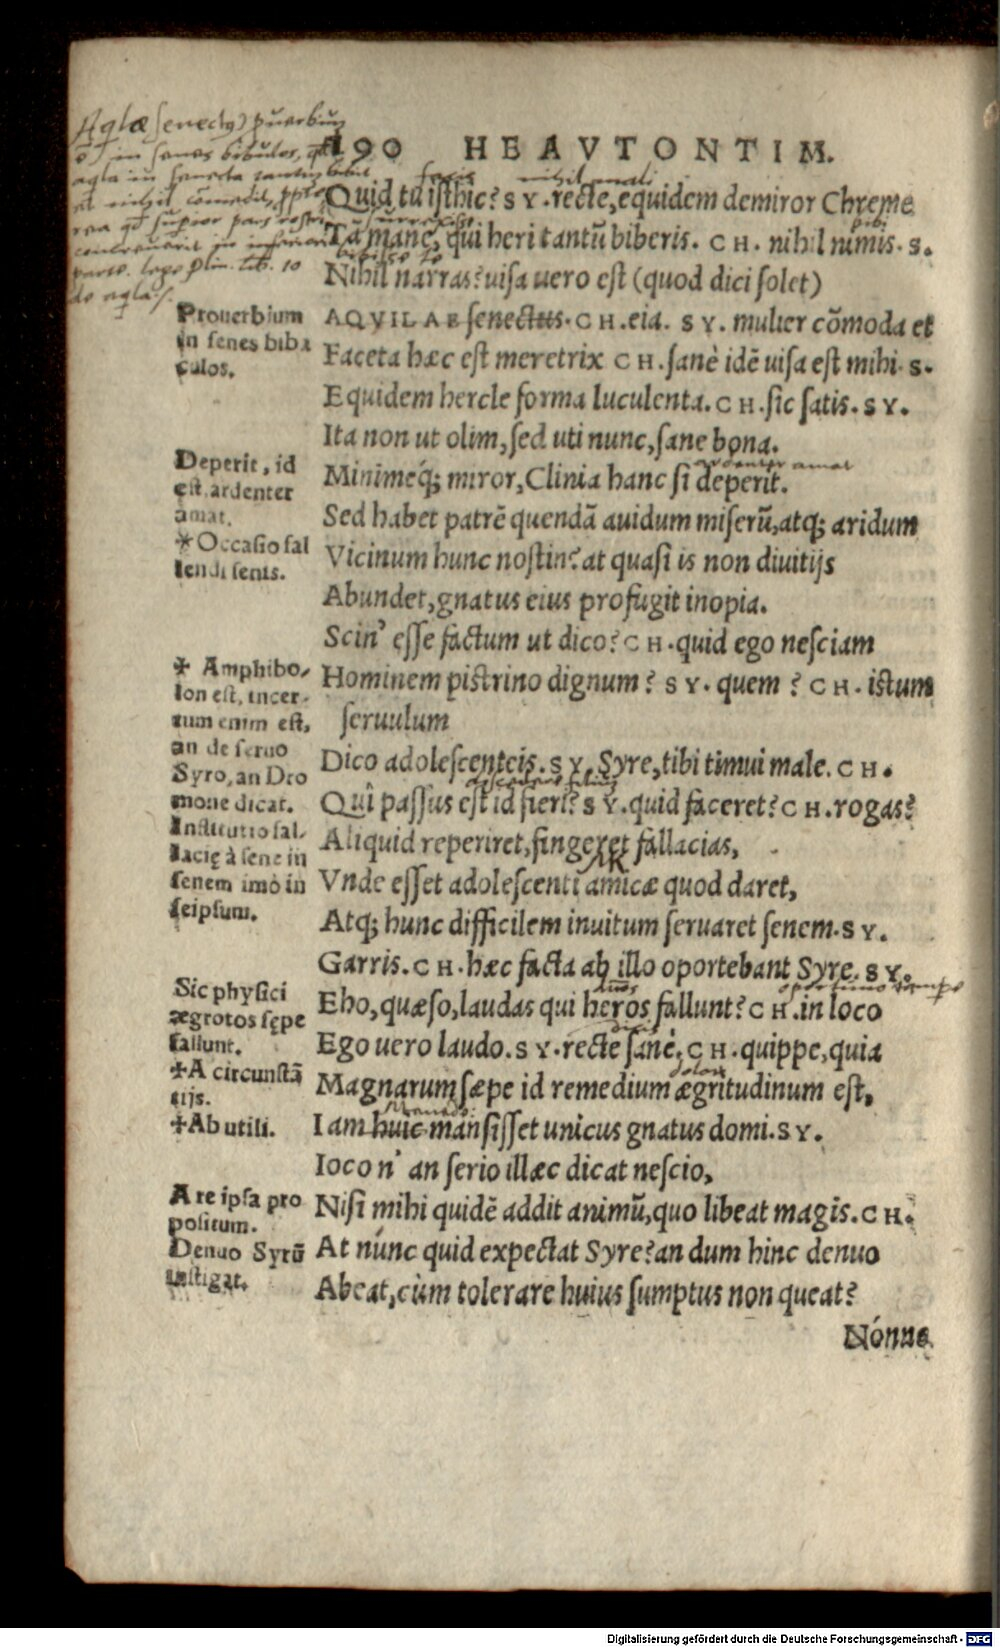 190 HEAVTONTIM.
Aqlæ senectus puerbium
in senes bibulos,
aqla in senecta tantum bibit
et nihil comedit, ppter
rostri
in inferiori
parte. lege Plin. lib. 10
de aqla
facis nihil mali
Quid tu isthic? SY. recte, equidem demiror Chreme
surrexisse bibi
Tā mane, qui heri tantū biberis. CH. nihil nimis. S.
bibisse te
Nihil narras? uisa uero est (quod dici solet)
AQVILAE senectus. CH. eia. SY. mulier cōmoda et
Faceta hæc est meretrix CH. sanè idē uisa est mihi. S.
Equidem hercle forma luculenta. CH. sic satis. SY.
Ita non ut olim, sed uti nunc, sane bona.
ardenter amat
Minimeq́; miror, Clinia hanc si deperit.
Sed habet patrē quendā auidum miserū, atq; aridum
Vicinum hunc nostin? at quasi is non diuitijs
Abundet, gnatus eius profugit inopia.
Scin' esse factum ut dico? CH. quid ego nesciam
Hominem pistrino dignum? SY. quem? CH. istum
seruulum
Dico adolescenteis. SY. Syre, tibi timui male. CH.
Quî passus est id fieri? SY. quid faceret? CH. rogas?
Aliquid reperiret, fingeret fallacias,
Vnde esset adolescenti amicæ quod daret,
Atq; hunc difficilem inuitum seruaret senem. SY.
Garris. CH. hæc facta ab illo oportebant Syre. SY.
oportuno tempore
Eho, quæso, laudas qui heros fallunt? CH. in loco
dicis
Ego uero laudo. SY. recte sanè. CH. quippe, quia
dolorū
Magnarum sæpe id remedium ægritudinum est,
Menede:
Iam huic mansisset unicus gnatus domi. SY.
Iocon' an serio illæc dicat nescio,
Nisi mihi quidē addit animū, quo libeat magis. CH.
At nunc quid expectat Syre? an dum hinc denuo
Abeat, cùm tolerare huius sumptus non queat?
Nónne
Prouerbium
in senes biba
culos.
Deperit, id
est, ardenter
amat.
*Occasio fal
lendi senis.
✠ Amphibo-
lon est, incer-
tum enim est,
an de seruo
Syro, an Dro
mone dicat.
Institutio fal-
lacię à sene in
senem imò in
seipsum.
Sic physici
ægrotos sępe
fallunt.
✠A circunstā
tijs.
✠Ab utili.
A re ipsa pro
positum.
Denuo Syrū
instigat.
Digitalisierung gefördert durch die Deutsche Forschungsgemeinschaft - DFG